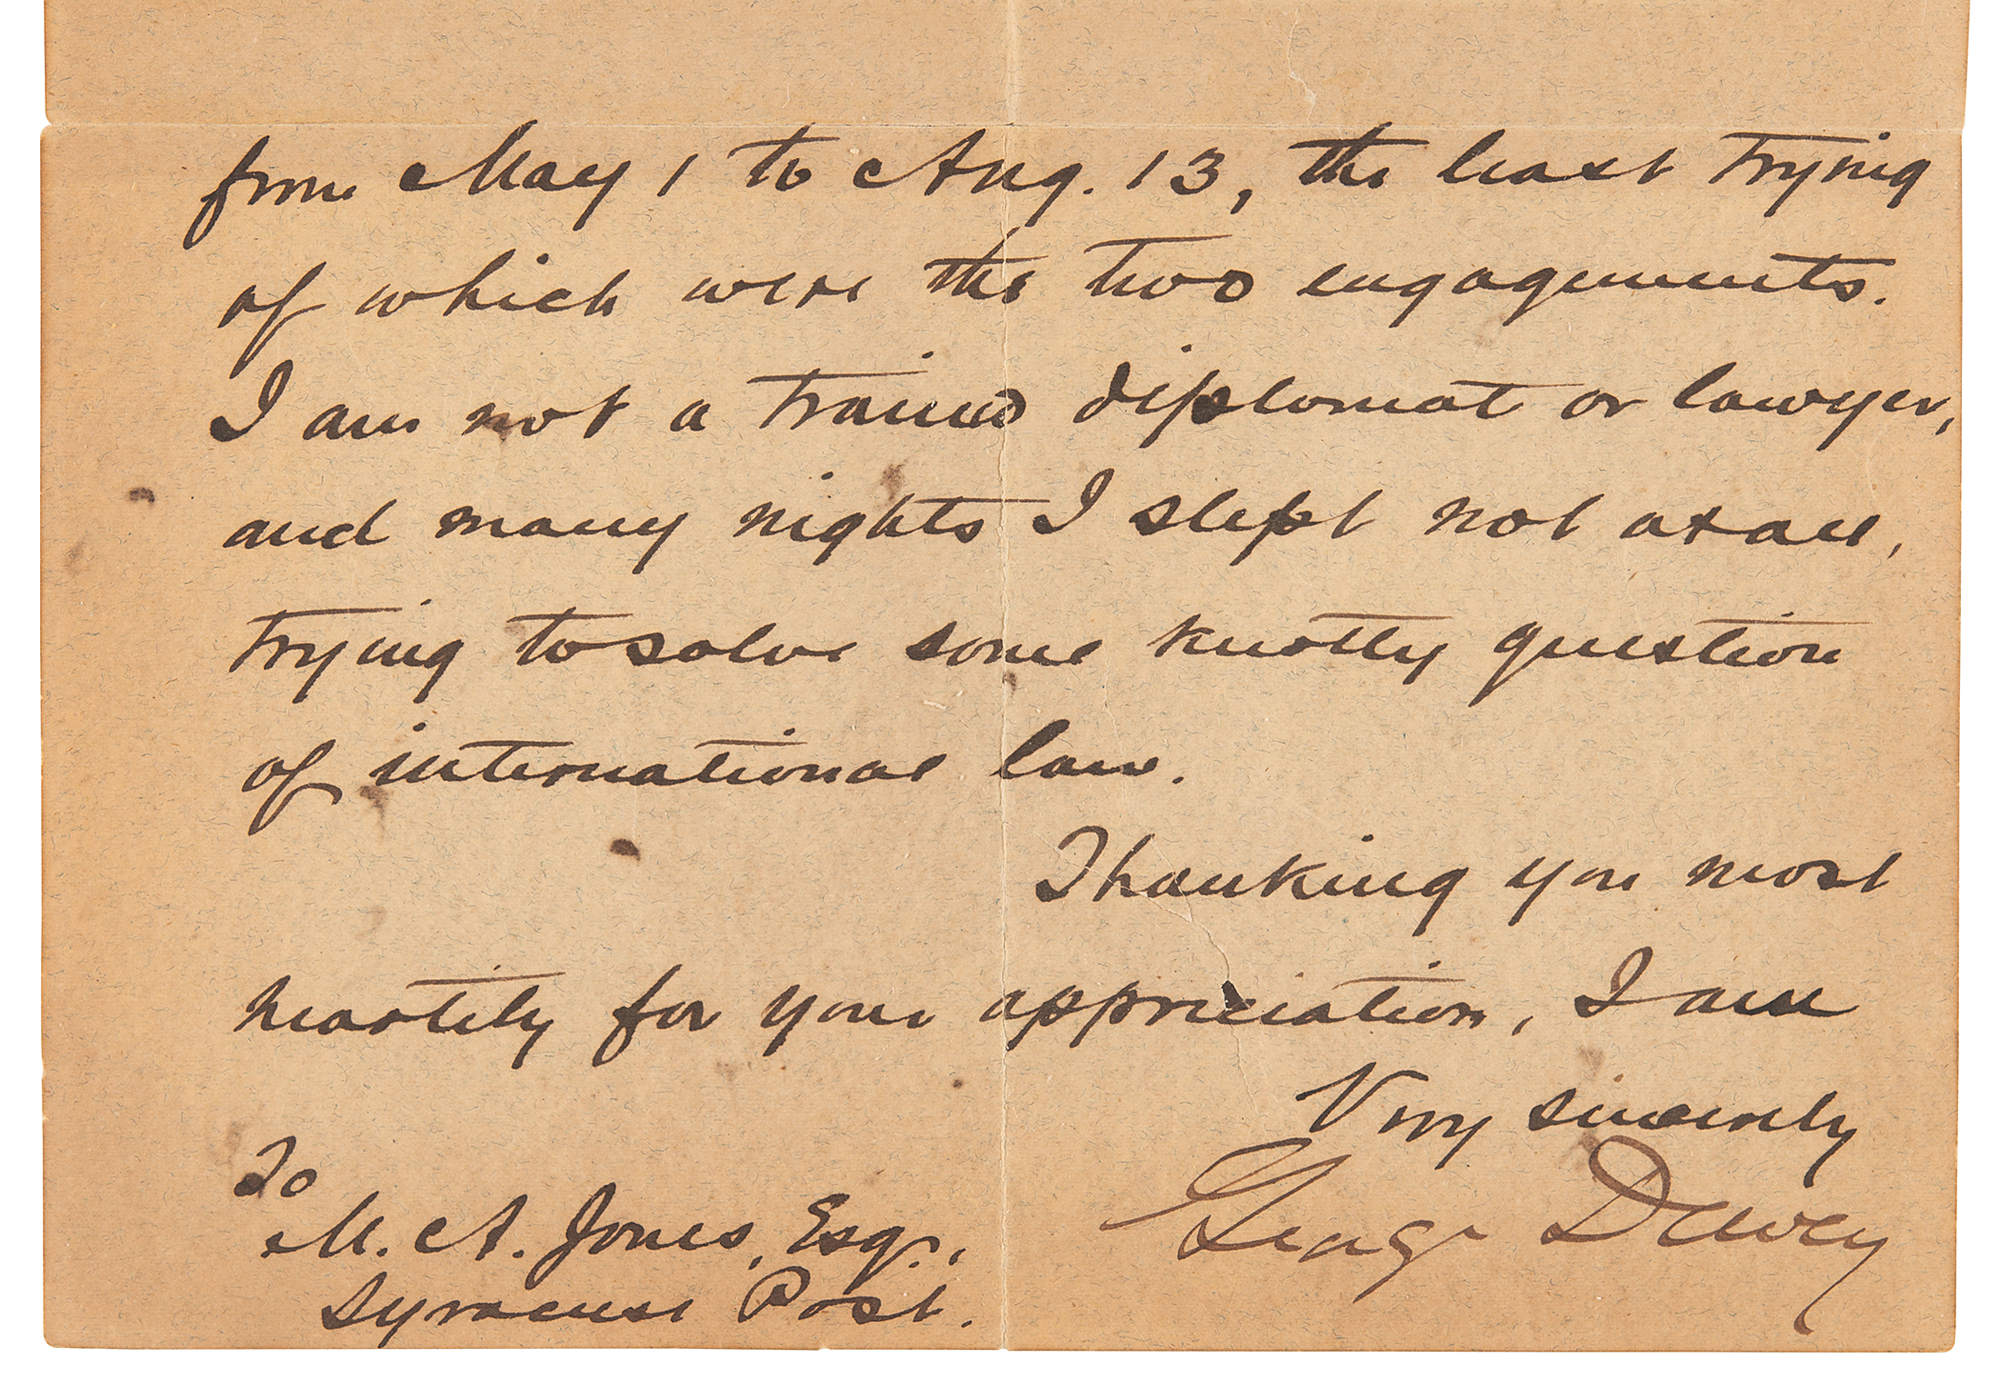 from May 1 to Aug. 13, the least trying
of which were the two engagements.
I am not a trained diplomat or lawyer,
and many nights I slept not at all,
trying to solve some knotty question
of international law.
Thanking you most
heartily for your appreciation, I am
Very sincerely
George Dewey
To
M. A. Jones, Esq.,
Syracuse Post.